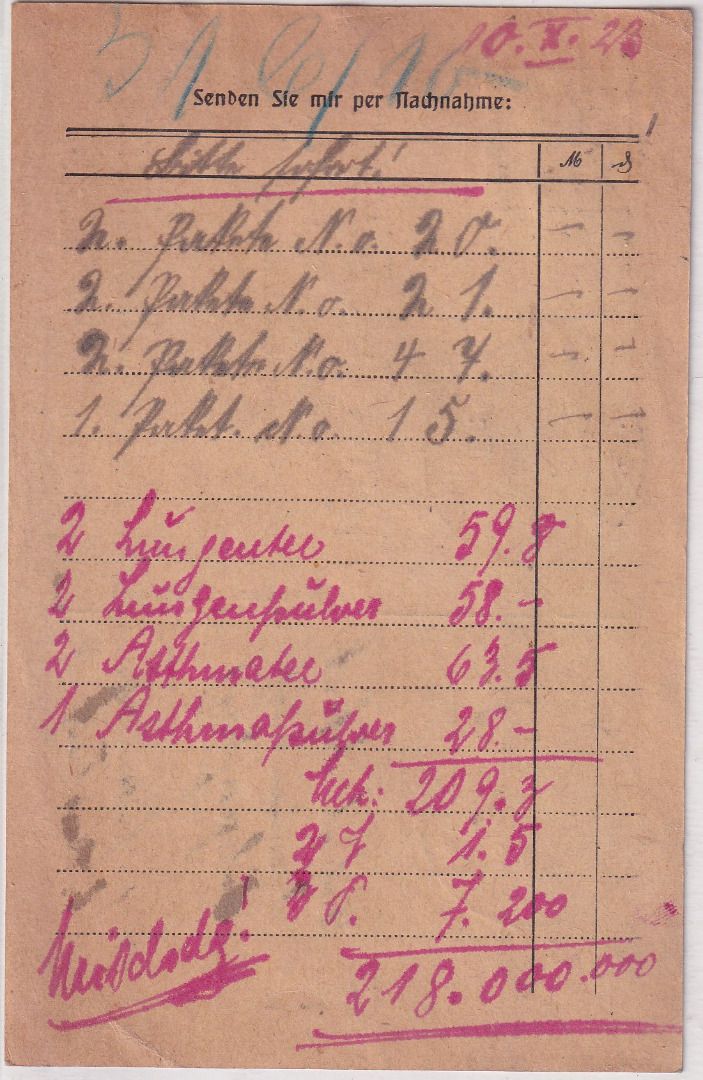 10. X. 23
Senden Sie mir per Nachnahme:
M ₰
Bitte sofort!
2. Pakete N.o. 20. — —
2. Pakete N.o. 21. — —
2. Pakete N.o. 47. — —
1. Paket. No. 15. — —
2 Lungentee 59.8
2 Lungenpulver 58.-
2 Asthmatee 63.5
1 Asthmapulver 28.-
209.3
1.5
7.200
218.000.000